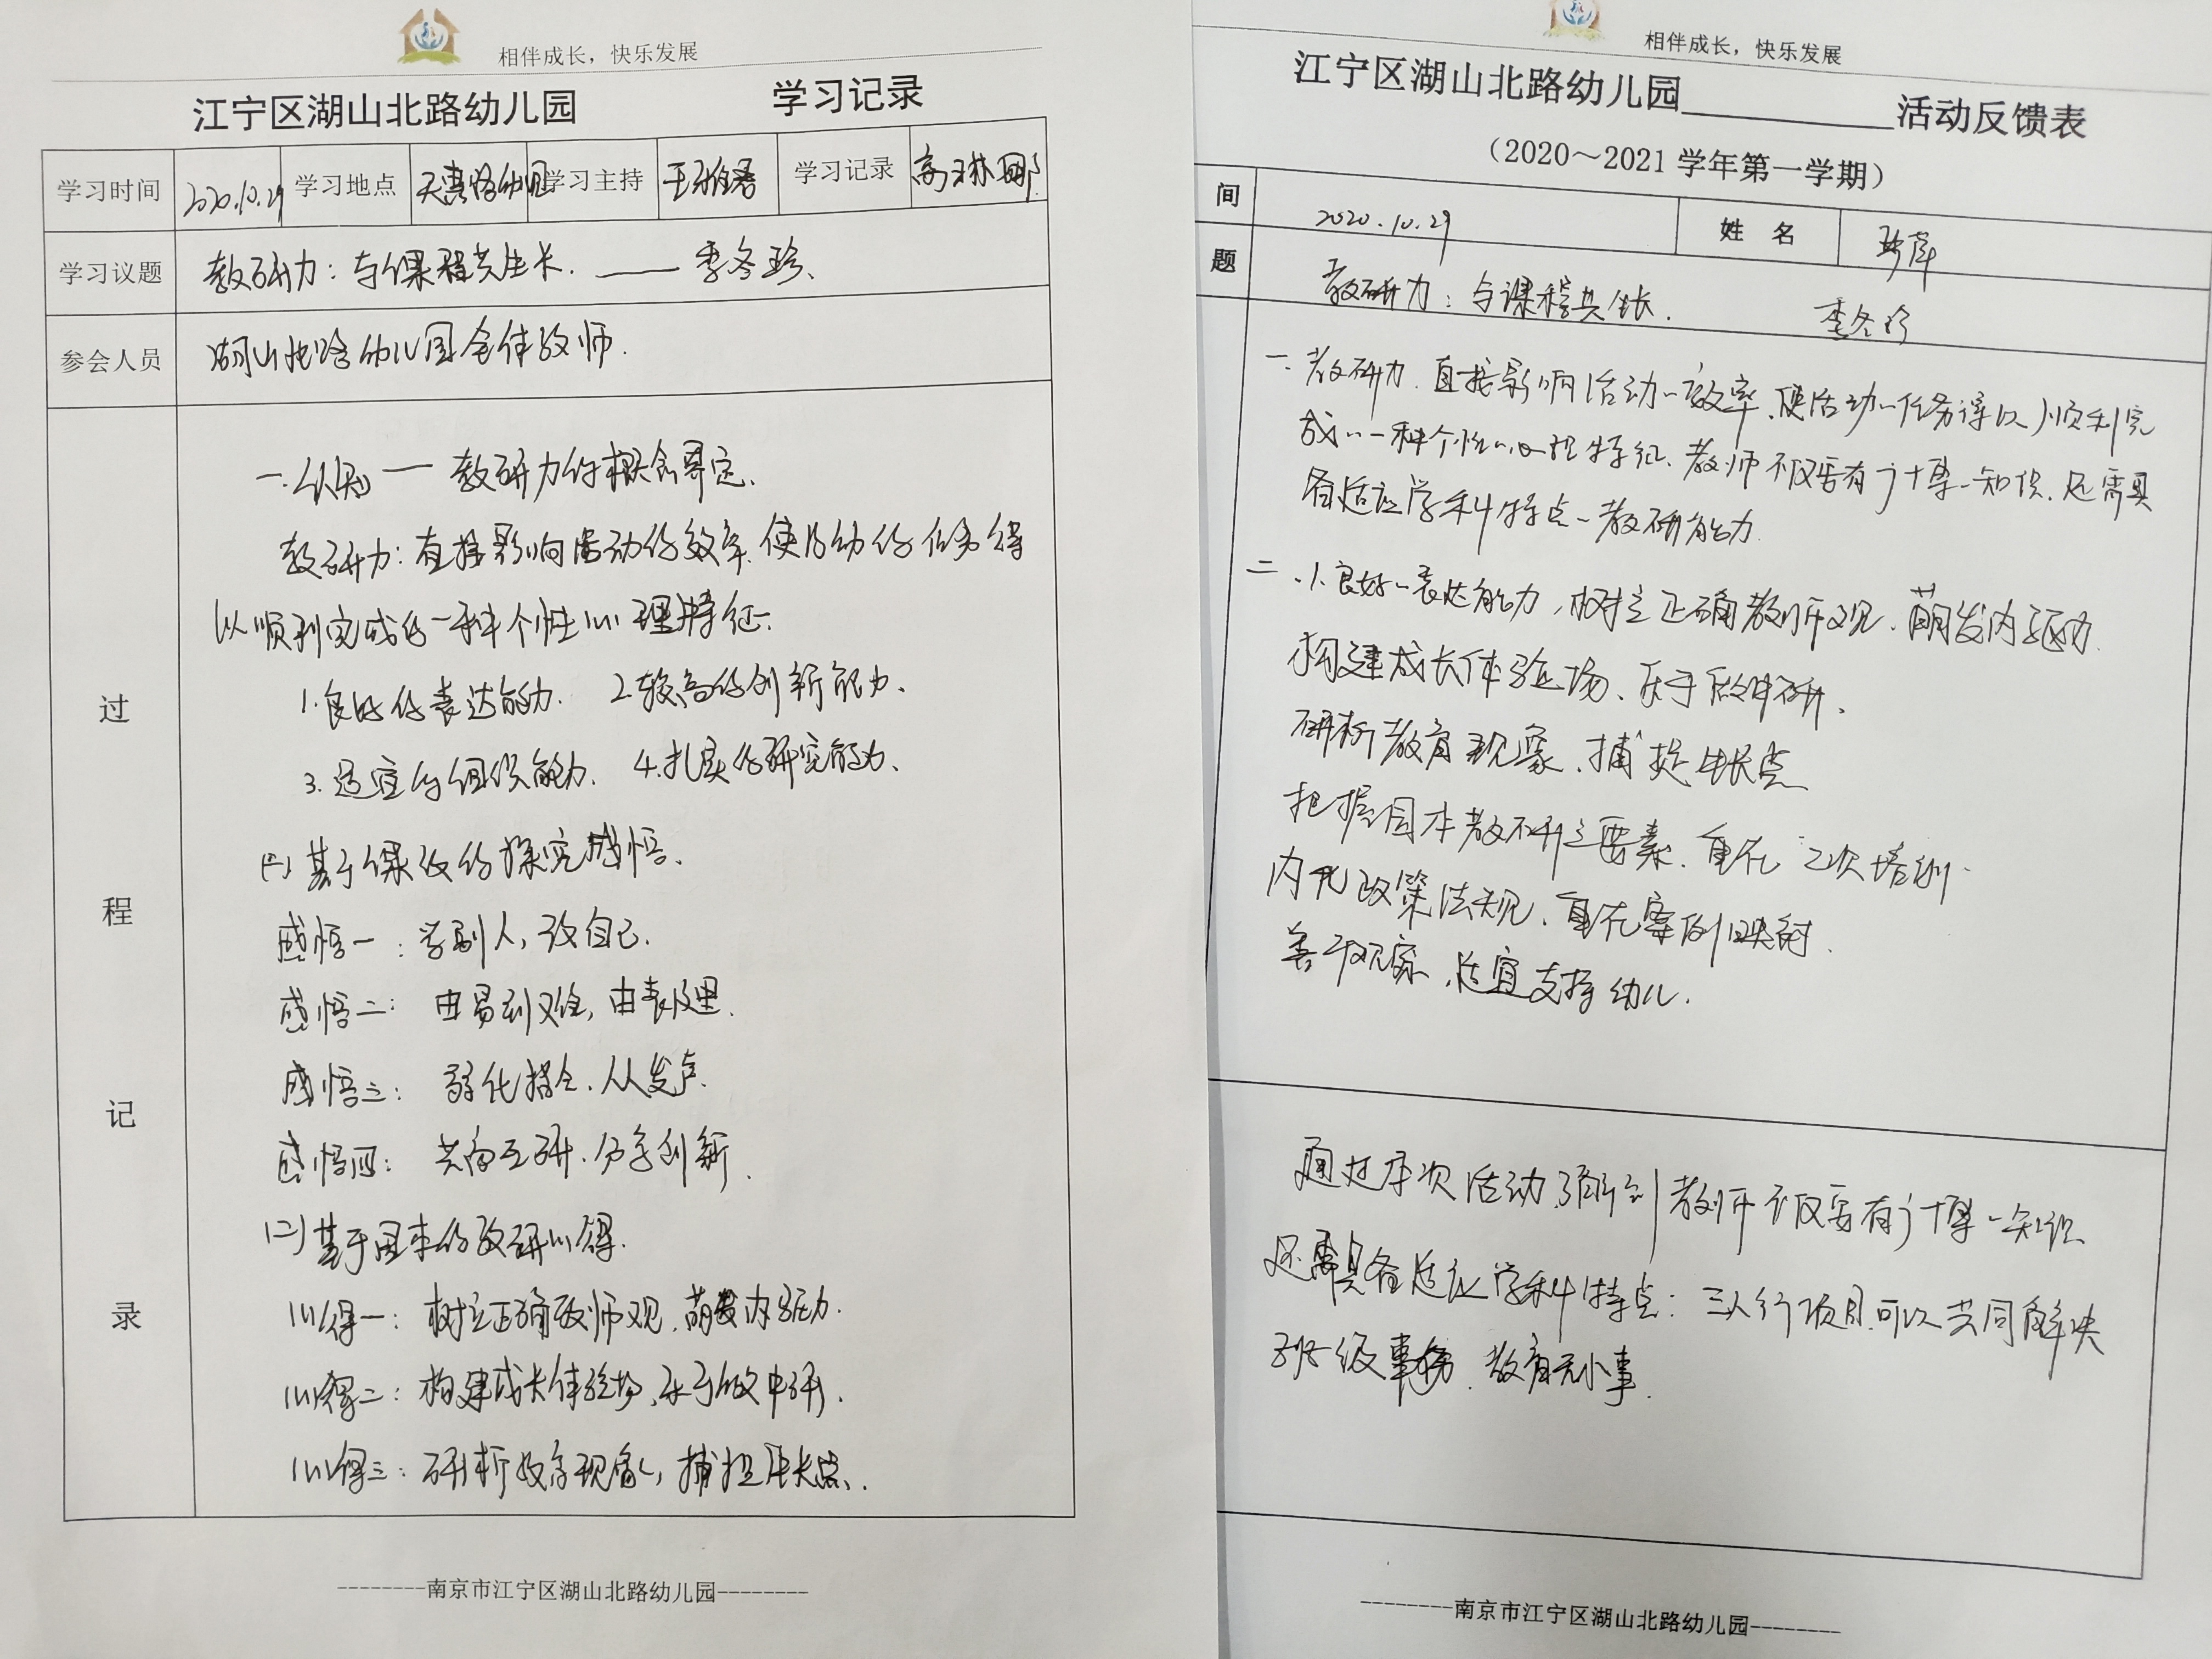 相伴成长，快乐发展
江宁区湖山北路幼儿园 学习记录
学习时间 2020.10.29 学习地点 学习主持 学习记录
学习议题 教研力：与课程共生长. —— 季冬珍、
参会人员 湖山北路幼儿园全体教师.
过程记录
一.认知 — 教研力的概念界定.
教研力：直接影响活动的效率、使活动的任务得
以顺利完成的一种个性心理特征.
1.良好的表达能力. 2.较高的创新能力、
3.适宜的组织能力、 4.扎实的研究能力、
(一)基于课改的探究感悟、
感悟一：学别人，改自己.
感悟二：由易到难，由表及里.
感悟三：弱化指令、人人发声.
感悟四：共商互研、分享创新.
(二)基于园本的教研心得.
心得一：树立正确教师观、萌发内驱力.
心得二：构建成长体验场、乐于做中研、
心得三：研析教育现象，捕捉生长点、
--------南京市江宁区湖山北路幼儿园--------
相伴成长，快乐发展
江宁区湖山北路幼儿园________活动反馈表
（2020～2021 学年第一学期）
间 2020.10.29 姓 名
题 教研力：与课程共生长. 季冬珍
一.教研力.直接影响活动效率、使活动任务得以顺利完
成一种个性心理特征、教师不仅要有广博知识.还需具
备适应学科特点教研能力.
二.1.良好表达能力，树立正确教师观、萌发内驱力
构建成长体验场、乐于做中研、
研析教育现象、捕捉生长点
把握园本教研之要素、重在二次培训.
内化政策法规、重在案例映射.
善于观察、适宜支持幼儿.
通过本次活动，了解到教师不仅要有广博知识
还需具备适应学科特点：三人行项目可以共同解决
班级事务、教育无小事.
--------南京市江宁区湖山北路幼儿园--------